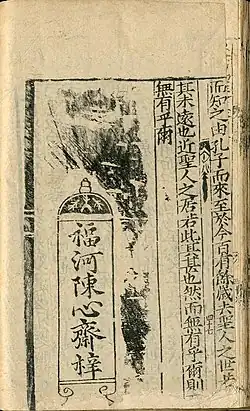 而知之由孔子而來至於今百有餘歲去聖人之世若
其未遠也近聖人之居若此其甚也然而無有乎爾則
無有乎爾
福河陳心齋梓